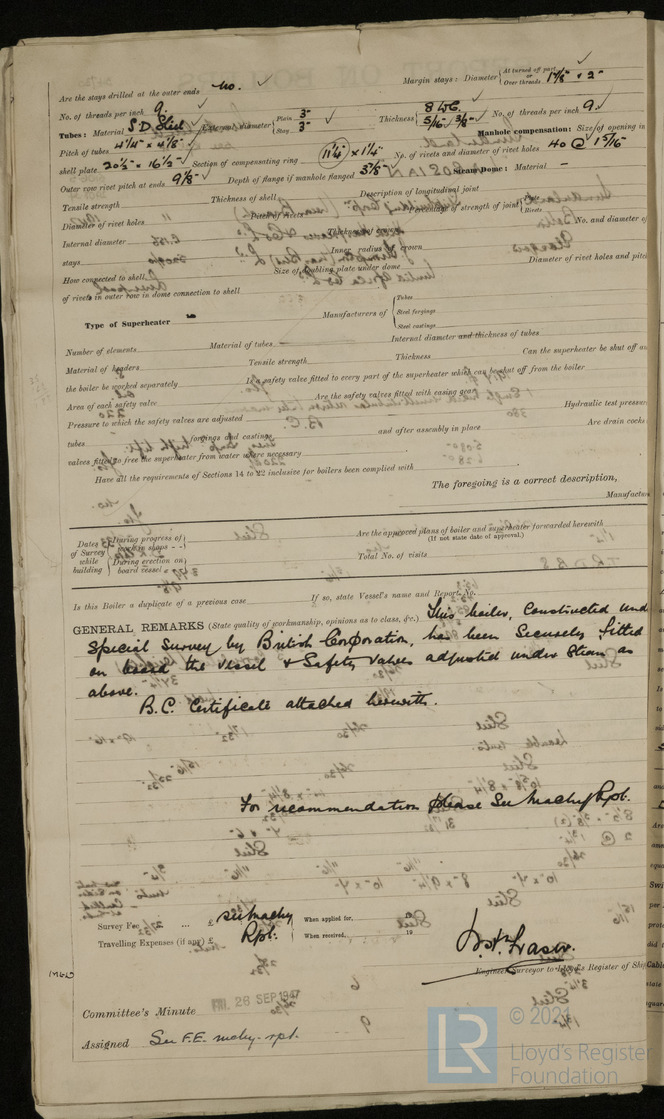 Are the stays drilled at the outer ends No. Margin stays: Diameter { At turned off part or Over threads 1 7/8" & 2"
No. of threads per inch 9.
Tubes: Material S.D. Steel External diameter { Plain 3" Stay 3" Thickness { 8 W.G. 5/16" 3/8" No. of threads per inch 9
Pitch of tubes 4 1/4" x 4 1/8" Manhole compensation: Size of opening in
shell plate 20 1/2" x 16 1/2" Section of compensating ring 11 1/4" x 1 1/4" No. of rivets and diameter of rivet holes 40 @ 1 5/16"
Outer row rivet pitch at ends 9 1/8" Depth of flange if manhole flanged 3 5/8" Steam Dome: Material —
Tensile strength Thickness of shell Description of longitudinal joint
Diameter of rivet holes Pitch of rivets Percentage of strength of joint { Plate Rivets
Internal diameter Thickness of crown No. and diameter of
stays Inner radius of crown
How connected to shell Size of doubling plate under dome Diameter of rivet holes and pitch
of rivets in outer row in dome connection to shell
Type of Superheater Manufacturers of { Tubes Steel forgings Steel castings
Number of elements Material of tubes Internal diameter and thickness of tubes
Material of headers Tensile strength Thickness Can the superheater be shut off and
the boiler be worked separately Is a safety valve fitted to every part of the superheater which can be shut off from the boiler
Area of each safety valve Are the safety valves fitted with easing gear
Pressure to which the safety valves are adjusted Hydraulic test pressure
tubes forgings and castings and after assembly in place Are drain cocks
valves fitted to free the superheater from water where necessary
Have all the requirements of Sections 14 to 22 inclusive for boilers been complied with
The foregoing is a correct description,
Manufactur
Dates of Survey while building { During progress of work in shops - - During erection on board vessel - - -
Are the approved plans of boiler and superheater forwarded herewith
(If not state date of approval.)
Total No. of visits
Is this Boiler a duplicate of a previous case If so, state Vessel's name and Report No.
GENERAL REMARKS (State quality of workmanship, opinions as to class, &c.) This boiler, Constructed und
Special Survey by British Corporation, has been Securely fitted
on board the vessel & Safety Valves adjusted under Steam as
above.
B.C. Certificate attached herewith.
For recommendation please See Machy Rpt.
Survey Fee ... ... £ see Machy When applied for, 19
Travelling Expenses (if any) £ Rpt. When received, 19
Engineer Surveyor to Lloyd's Register of Ship
Committee's Minute FRI. 26 SEP 1947
Assigned See F.E. machy. rpt.
© 2021
Lloyd's Register
Foundation